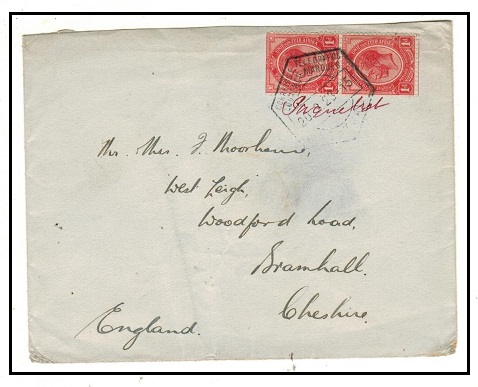 Paquebot
Mr. Mrs. J. Moorhouse,
West Leigh,
Woodford Road,
Bramhall.
Cheshire.
England.